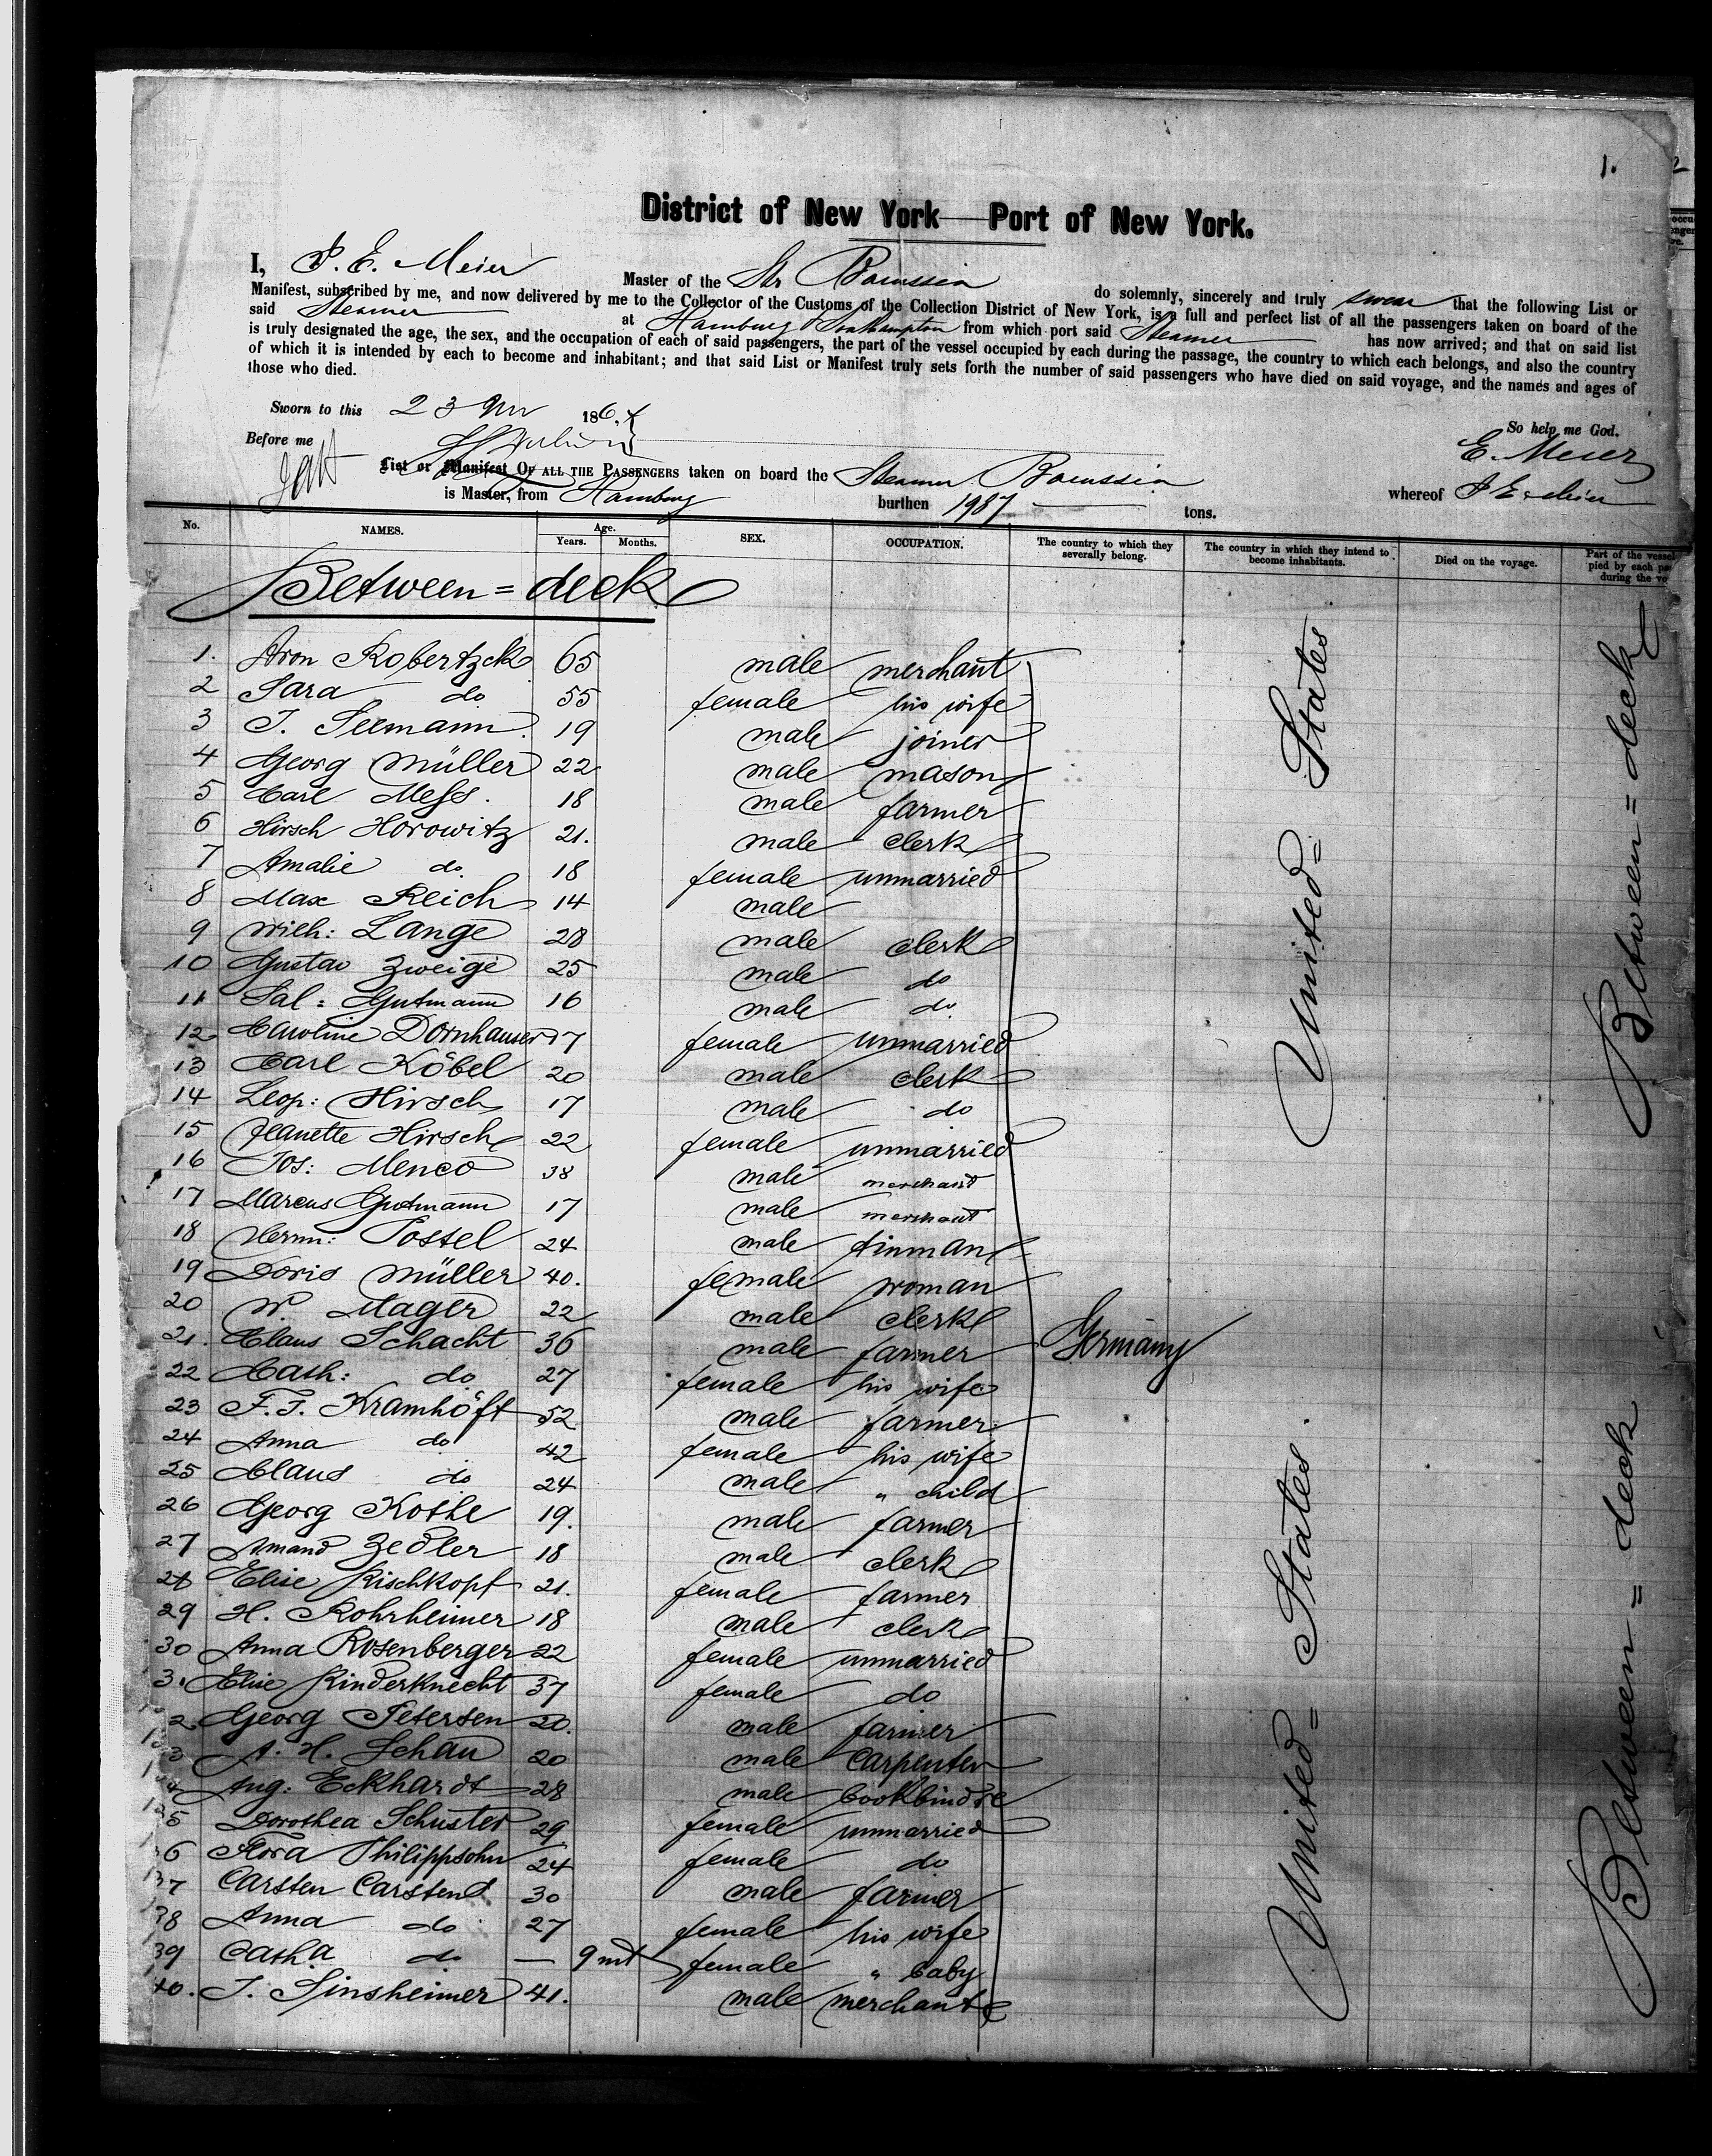 1.
District of New York — Port of New York.
I, P. E. Meier Master of the Str Borussia do solemnly, sincerely and truly swear that the following List or
Manifest, subscribed by me, and now delivered by me to the Collector of the Customs of the Collection District of New York, is a full and perfect list of all the passengers taken on board of the
said Steamer at Hamburg Southampton from which port said Steamer has now arrived; and that on said list
is truly designated the age, the sex, and the occupation of each of said passengers, the part of the vessel occupied by each during the passage, the country to which each belongs, and also the country
of which it is intended by each to become and inhabitant; and that said List or Manifest truly sets forth the number of said passengers who have died on said voyage, and the names and ages of
those who died.
Sworn to this 23 186
So help me God.
Before me
E. Meier
List or Manifest OF ALL THE PASSENGERS taken on board the Steamer Borussia whereof P E Meier
is Master, from Hamburg burthen 1987 tons.
No. NAMES. Age. Years. Months. SEX. OCCUPATION. The country to which they severally belong. The country in which they intend to become inhabitants. Died on the voyage. Part of the vessel
pied by each
during the
Between=deck
1. Aron Robertzck 65 male merchant
2 Sara do 55 female his wife
3 J. Seemann 19 male joiner
4 Georg Müller 22 male mason
5 Carl Mess. 18 male farmer
6 Hirsch Horowitz 21. male clerk
7 Amalie do 18 female unmarried
8 Max Reich 14 male
9 Wilh: Lange 28 male clerk
10 Gustav Zweige 25 male do
11 Sal: Gutmann 16 male do
12 Caroline Dornhauser 17 female unmarried
13 Carl Köbel 20 male clerk
14 Leop: Hirsch 17 male do
15 Jeanette Hirsch 22 female unmarried
16 Jos: Menco 38 male merchant
17 Marcus Gutmann 17 male merchant
18 Herm: Possel 24 male tinman
19 Doris Müller 40. female woman
20 W. Mager 22 male clerk
21. Claus Schacht 36 male farmer Germany
22 Cath: do 27 female his wife
23 F. J. Kramhöft 52 male farmer
24 Anna do 42 female his wife
25 Claus do 24 male " child
26 Georg Kothe 19. male farmer
27 Amand Zedler 18 male clerk
28 Elise Kischkopf 21. female farmer
29 H. Rohrheimer 18 male clerk
30 Anna Rosenberger 22 female unmarried
31 Elise Kinderknecht 37 female do
2 Georg Petersen 20. male farmer
3 A. H. Schau 20 male carpenter
4 Aug: Eckhardt 28 male bookbindre
35 Dorothea Schuster 29 female unmarried
36 Flora Philippsohn 24 female do
37 Carsten Carstens 30 male farmer
38 Anna do 27 female his wife
39 Catha do — 9 mt female " baby
40. J. Sinsheimer 41. male merchant
United=States
United=States.
Between=deck
Between=deck